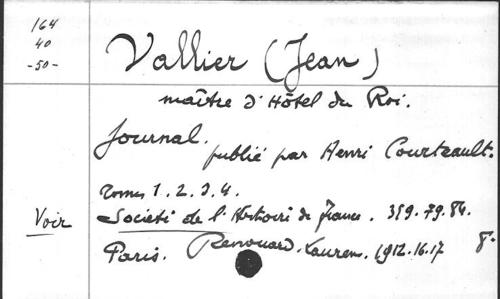 164
40
-50-
Vallier (Jean)
maître d'Hôtel du Roi.
Journal.
publié par Henri Courteault.
Tomes 1. 2. 3. 4.
Voir Société de l'Histoire de France. 359.79.84.
Paris. Renouard. Laurens. 1912.16.17 8°